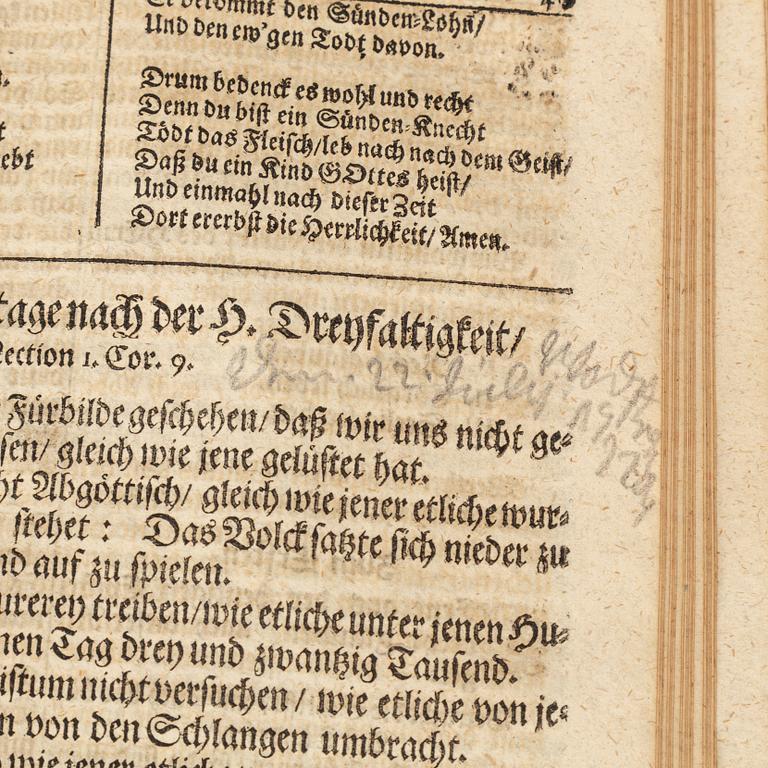 Er bekommt den Sünden-Lohn/
Und den ew'gen Todt davon.
Drum bedenck es wohl und recht
Denn du bist ein Sünden-Knecht
Tödt das Fleisch/leb nach nach dem Geist/
Daß du ein Kind GOttes heist/
Und einmahl nach dieser Zeit
Dort ererbst die Herrlichkeit/ Amen.
ebt
tage nach der H. Dreyfaltigkeit/
Lection 1. Cor. 9.
22. July
Fürbilde geschehen/ daß wir uns nicht ge-
sen/ gleich wie jene gelüstet hat.
ht Abgöttisch/ gleich wie jener etliche wur-
stehet : Das Volck satzte sich nieder zu
nd auf zu spielen.
urerey treiben/wie etliche unter jenen Hu-
nen Tag drey und zwantzig Tausend.
istum nicht versuchen / wie etliche von je-
n von den Schlangen umbracht.
wie jener etliche